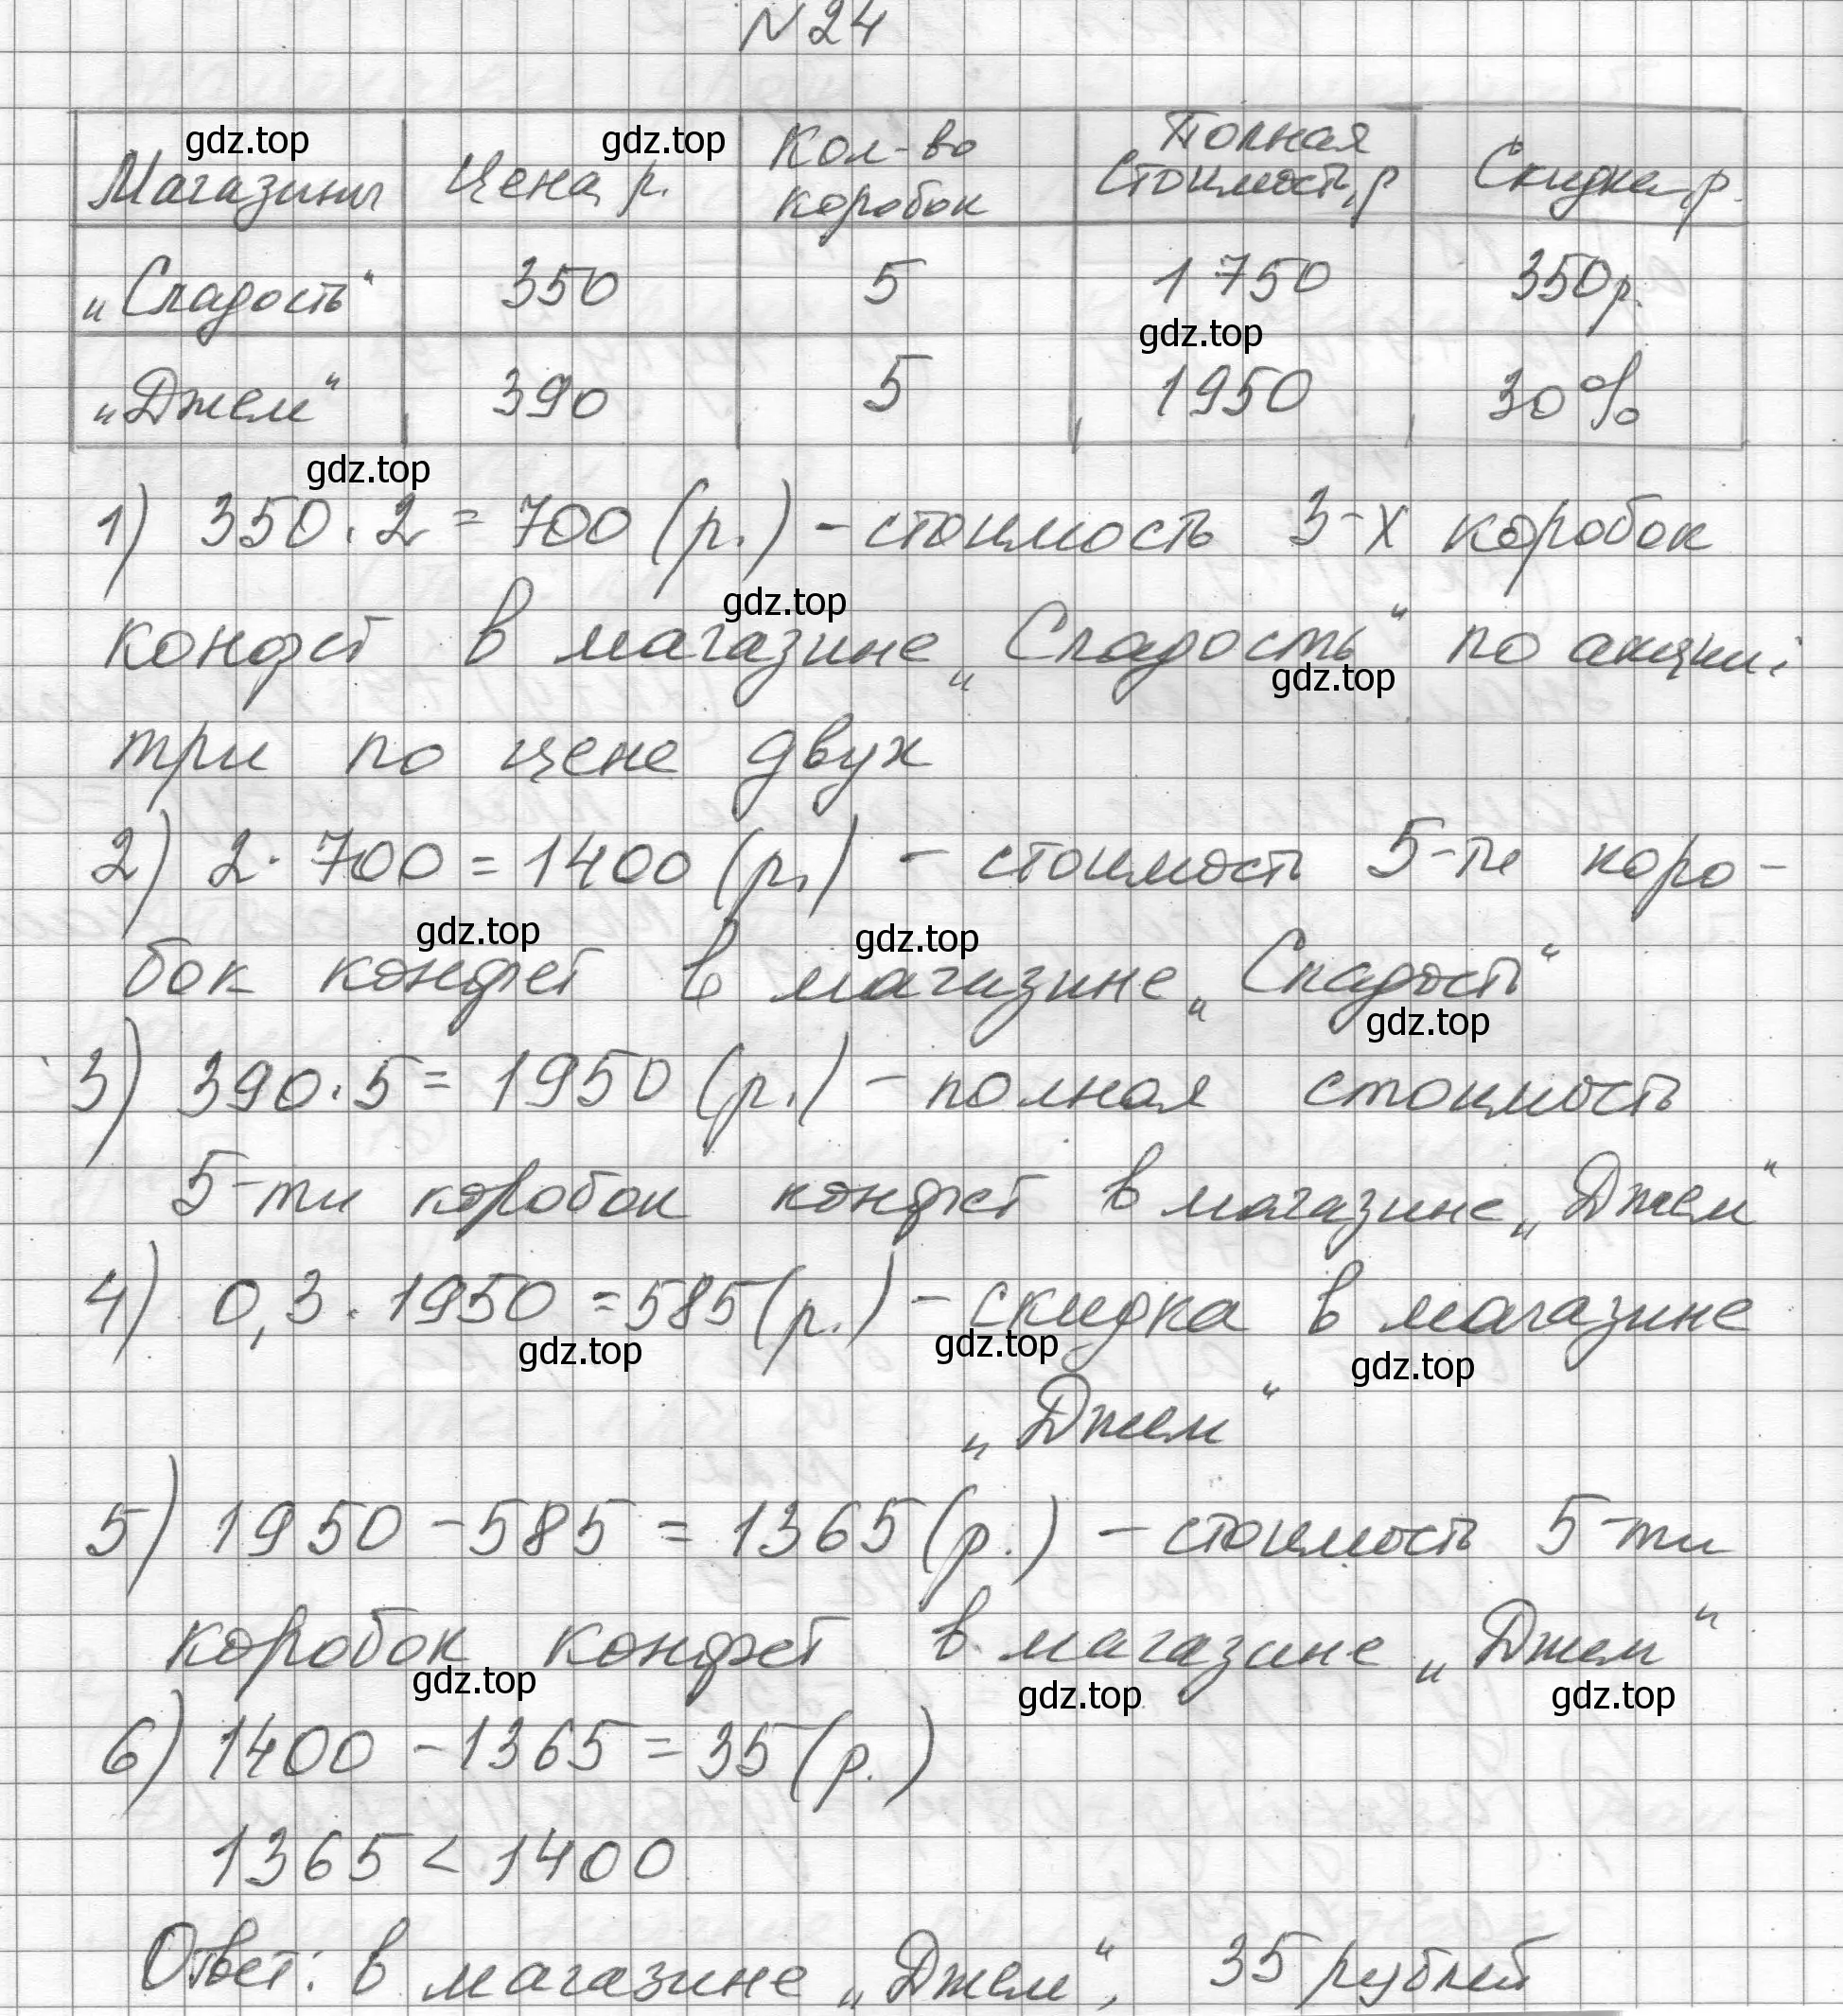 N24
gdz.top gdz.top
Магазины Цена, р. Кол-во коробок Полная стоимость, р Скидка, р.
„Сладость“ 350 5 1750 350р.
gdz.top
„Джем“ 390 5 1950 30%
gdz.top
1) 350·2=700(р.)-стоимость 3-х коробок
gdz.top
конфет в магазине „Сладость“ по акции:
gdz.top
три по цене двух
2) 2·700=1400(р.) - стоимость 5-ти коро-
gdz.top gdz.top
бок конфет в магазине „Сладость“
gdz.top
3) 390·5=1950(р.)-полная стоимость
5-ти коробок конфет в магазине „Джем“
4) 0,3·1950=585(р.)-скидка в магазине
gdz.top gdz.top gdz.top
„Джем“
5) 1950-585=1365(р.) -стоимость 5-ти
коробок конфет в магазине „Джем“
gdz.top gdz.top gdz.top
6) 1400-1365=35(р.)
1365<1400
Ответ: в магазине „Джем“, 35 рублей